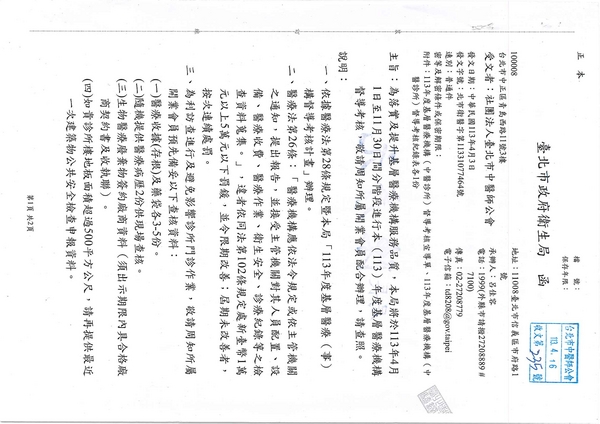 正本
檔號：
保存年限：
臺北市政府衛生局　函
100008
台北市中正區青島西路11號3樓
地址：110008臺北市信義區市府路1
承辦人：呂佳容
電話：1999(外縣市請撥27208889#
7100)
傳真：02-27208779
電子信箱：tul8208@gov.taipei
受文者：社團法人臺北市中醫師公會
發文日期：中華民國113年4月3日
發文字號：北市衛醫字第11331077464號
速別：普通件
密等及解密條件或保密期限：
附件：113年度基層醫療機構（中醫診所）督導考核宣導單、113年度基層醫療機構（中
醫診所）督導考核紀錄表各1份
主旨：為落實及提升基層醫療機構服務品質，本局將於113年4月
1日至11月30日間分階段進行本（113）年度基層醫療機構
督導考核，敬請周知所屬開業會員配合辦理，請查照。
說明：
一、依據醫療法第28條規定暨本局「113年度基層醫療（事）
機構督導考核計畫」辦理。
二、醫療法第26條：「醫療機構應依法令規定或依主管機關
之通知，提出報告，並接受主管機關對其人員配置、設
備、醫療收費、醫療作業、衛生安全、診療紀錄等之檢
查資料蒐集。」，違者依同法第102條規定處新臺幣1萬
元以上5萬元以下罰鍰，並令限期改善；屆期未改善者，
按次連續處罰。
三、為利訪查進行及避免影響診所門診作業，敬請周知所屬
開業會員預先備妥以下查核資料：
(一)醫療收據(存根)及藥袋各3-5份。
(二)隨機提供醫療病歷2份供現場查核。
(三)生物醫療廢棄物簽約廠商資料（須出示期限內具合格廠
商契約書及收執聯）。
(四)如貴診所樓地板面積超過500平方公尺，請再提供最近
一次建築物公共安全檢查申報資料。
台北市中醫師公會
113.4.16
收文第235號
第1頁 共2頁